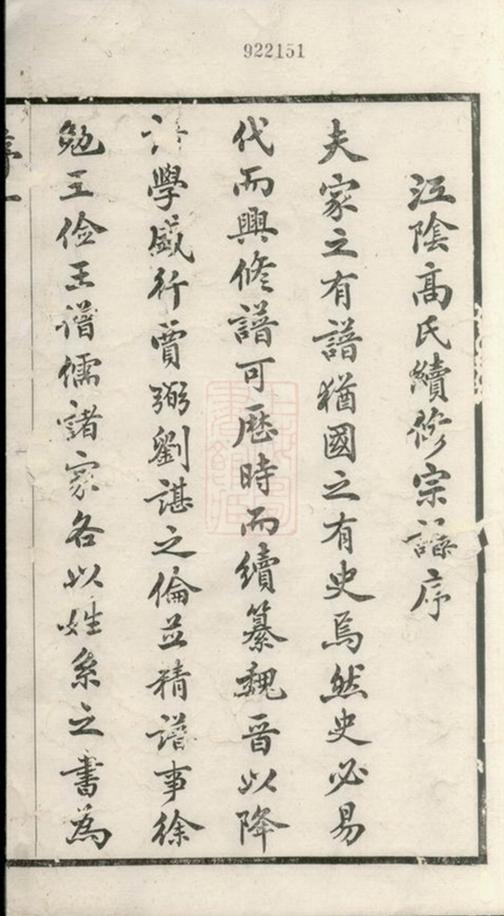 922151
江陰高氏續修宗譜序
夫家之有譜猶國之有史焉然史必易
代而興修譜可歷時而續纂魏晉以降
譜學盛行賈弼劉諶之倫並精譜事徐
勉王儉王僧孺諸家各以姓系之書為
序一